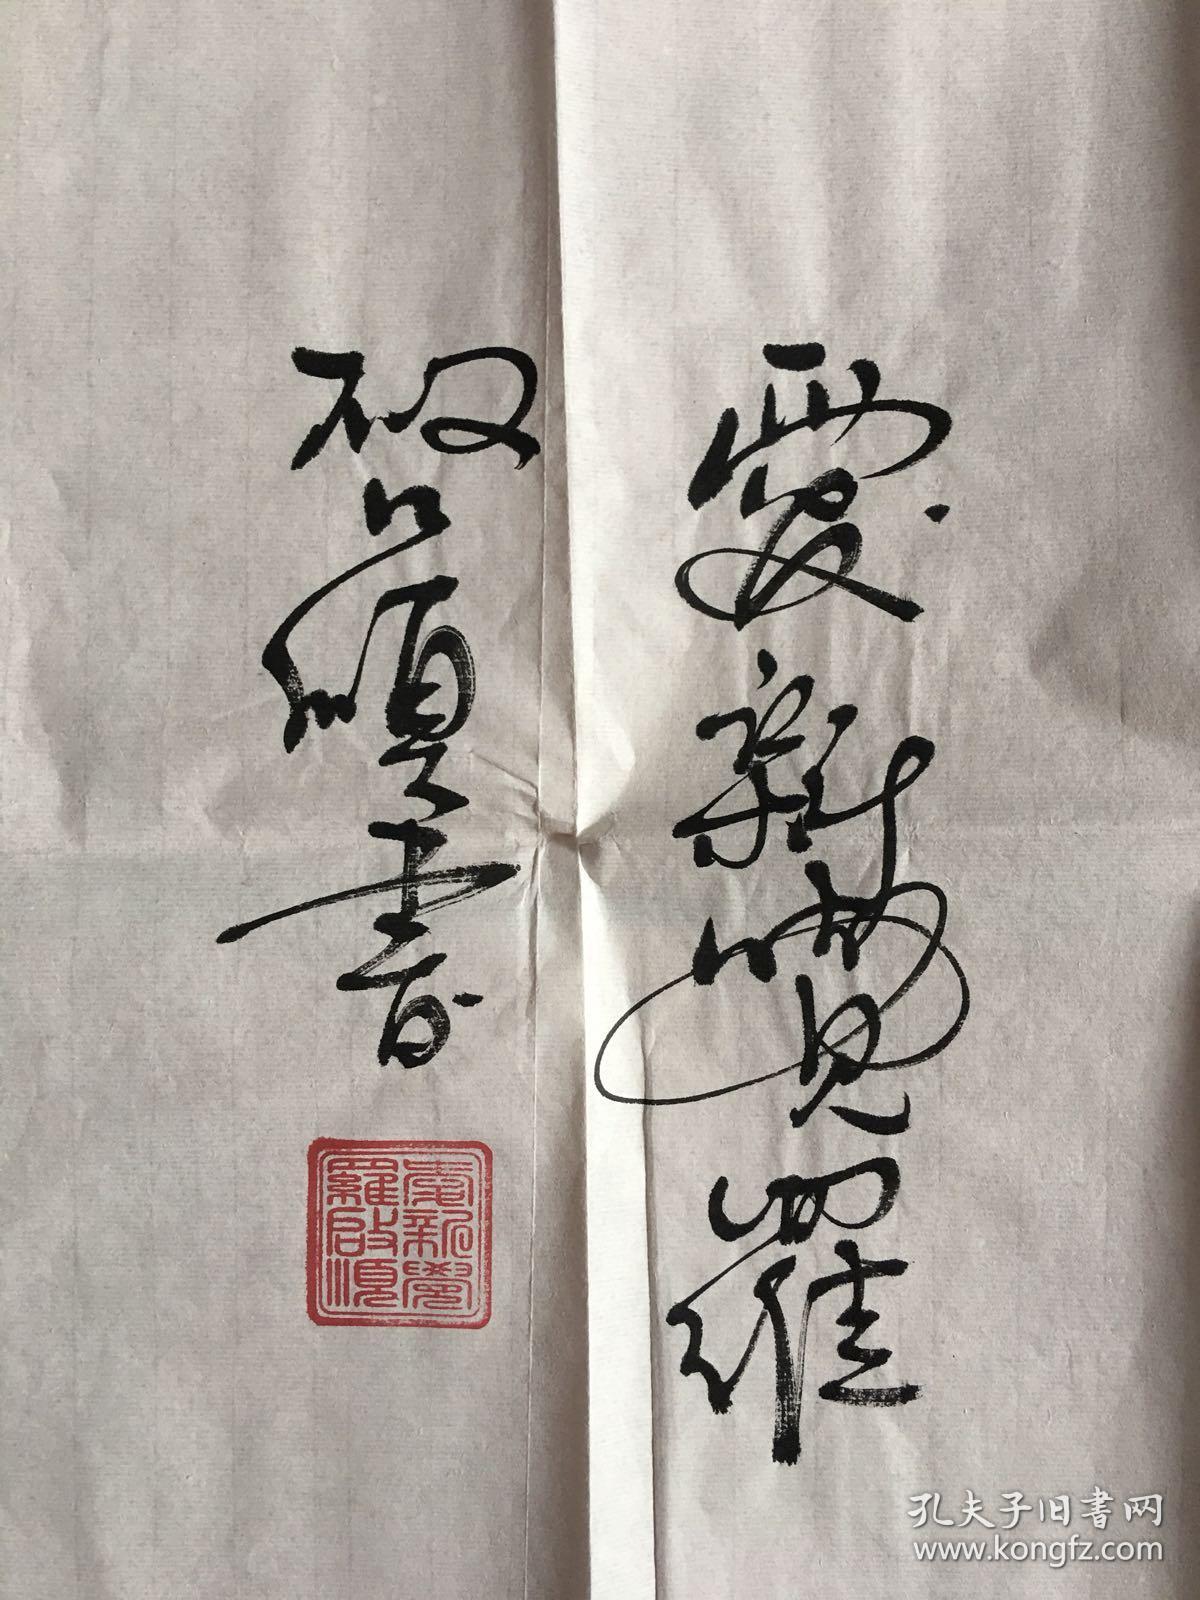 愛新覺羅
啓順書
愛新覺
羅啟順
孔夫子旧书网
www.kongfz.com